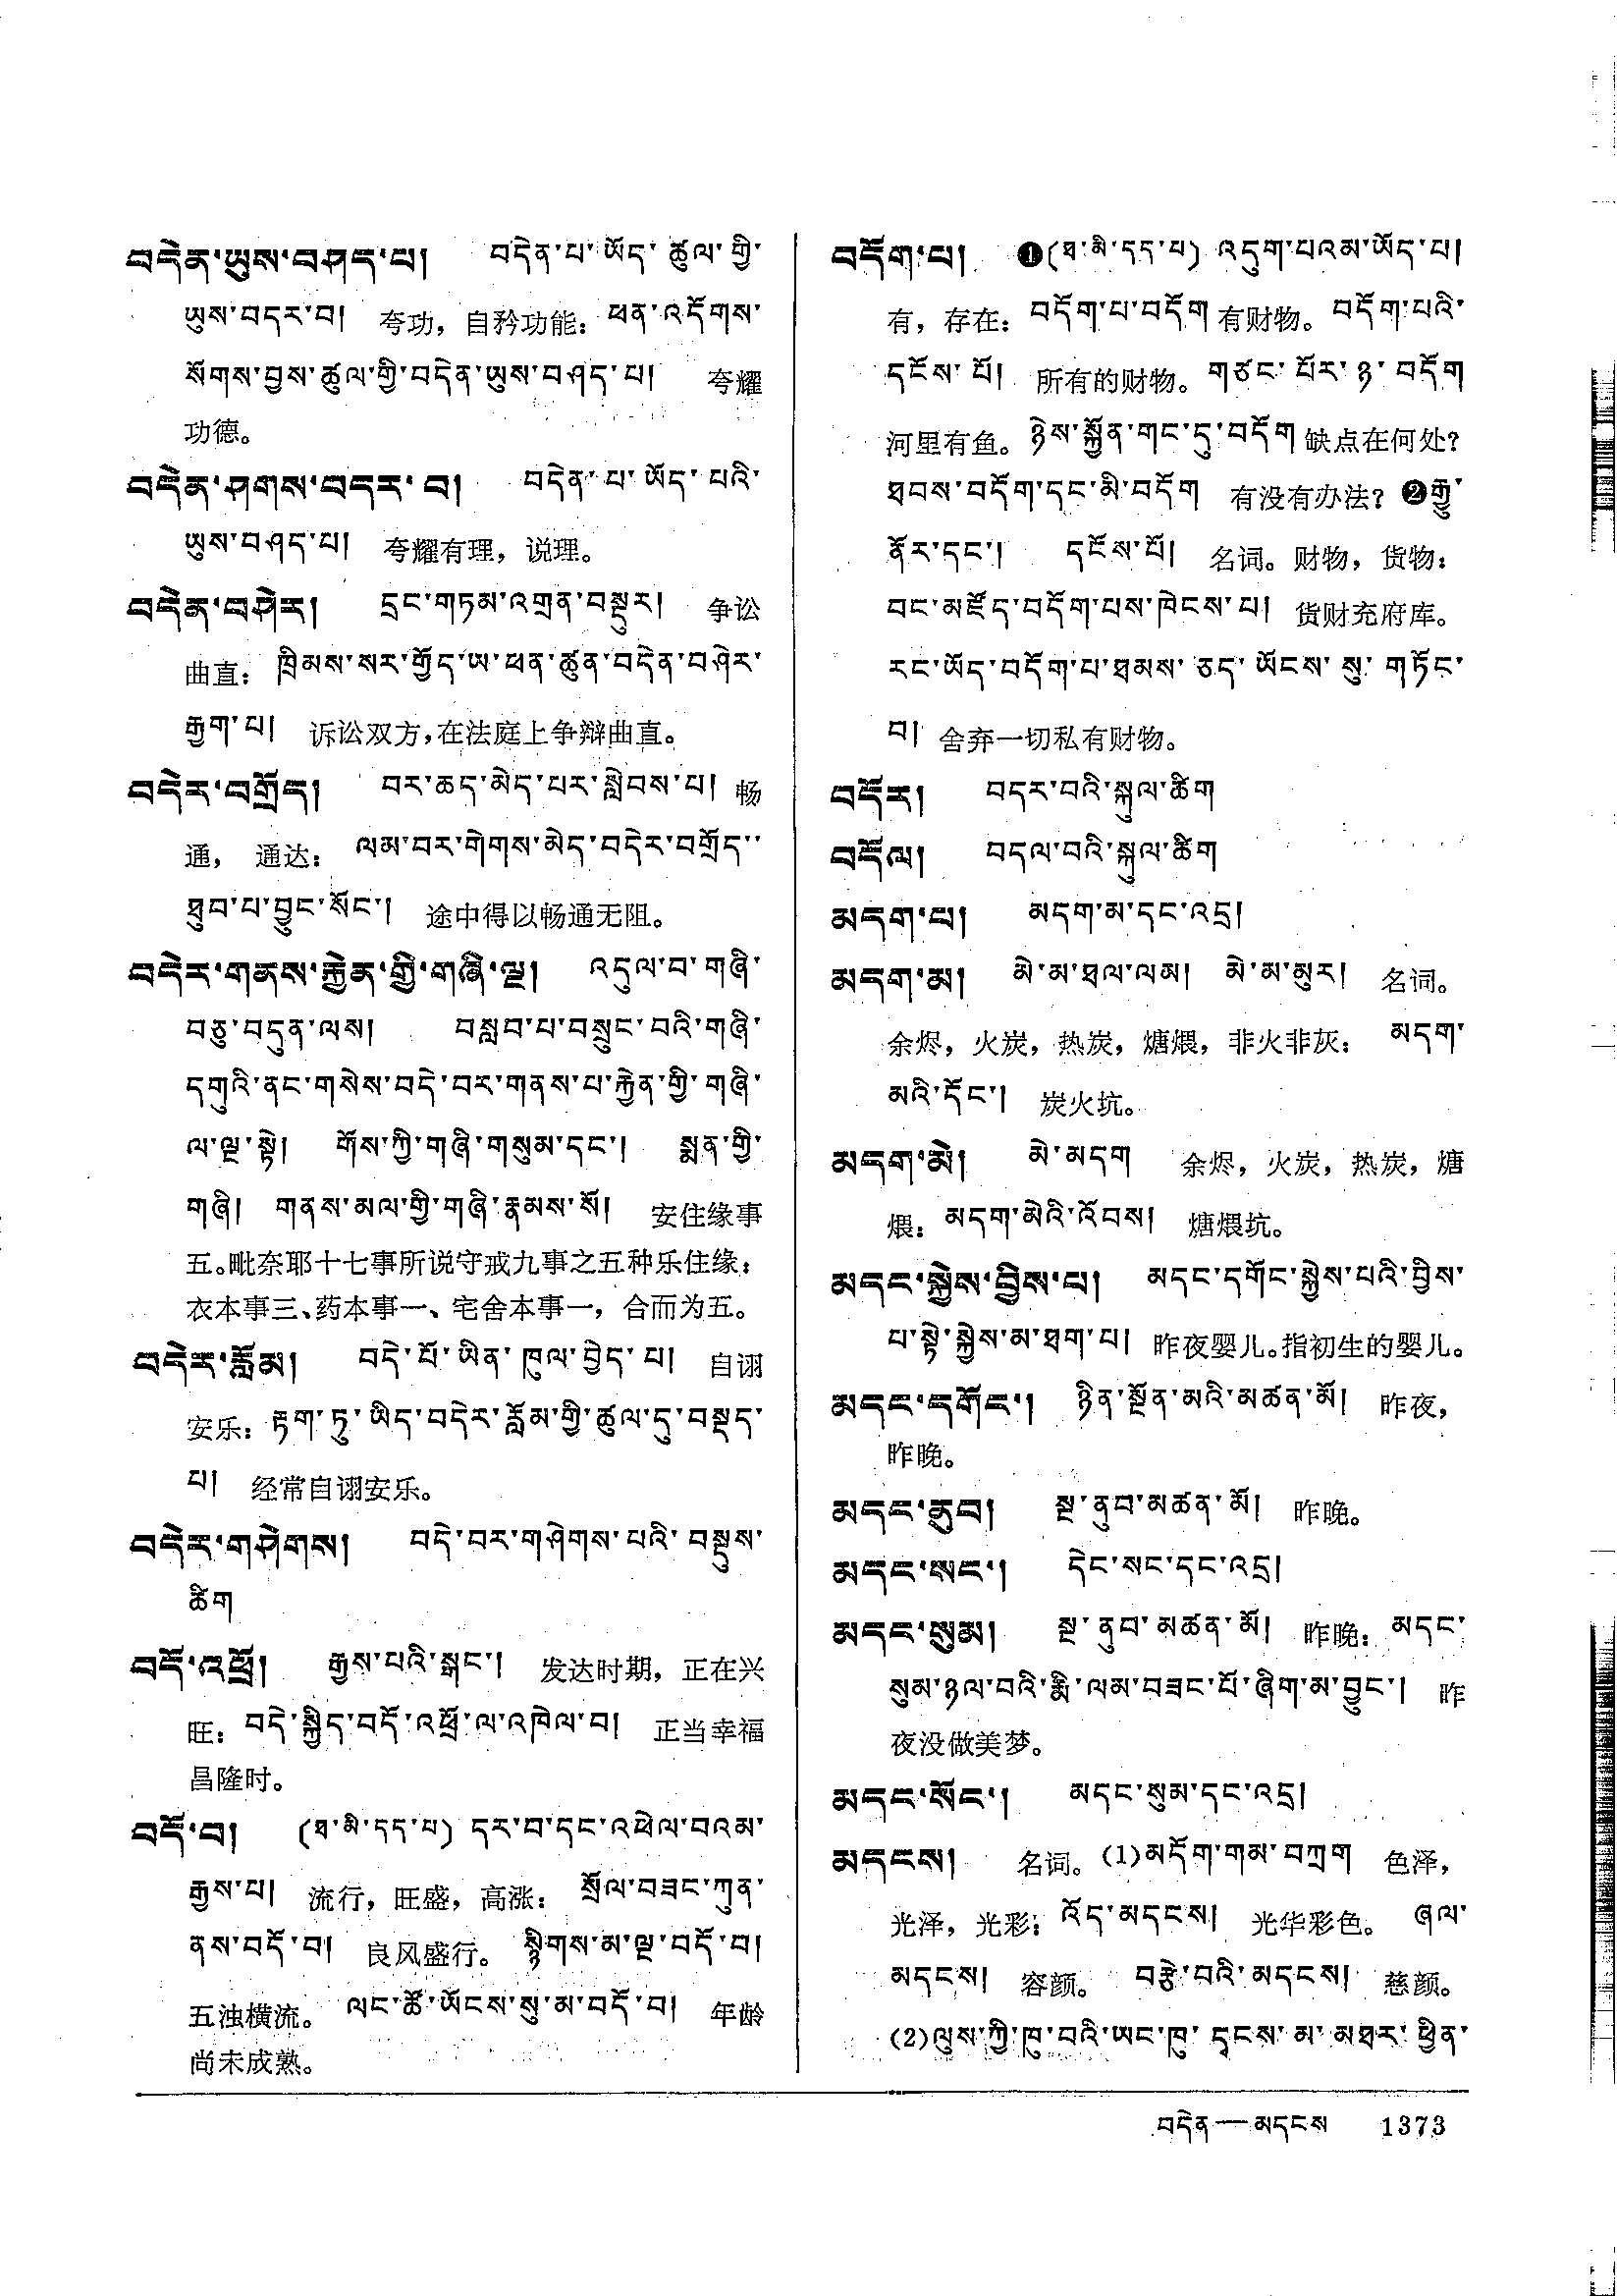 བདེན་ཡུས་བཤད་པ། བདེན་པ་ཡོད་ཚུལ་གྱི་
ཡུས་བདར་བ། 夸功，自矜功能：ཕན་འདོགས་
སོགས་བྱས་ཚུལ་གྱི་བདེན་ཡུས་བཤད་པ། 夸耀
功德。
བདེན་ཤགས་བདར་བ། བདེན་པ་ཡོད་པའི་
ཡུས་བཤད་པ། 夸耀有理，说理。
བདེན་བཤེར། དྲང་གཏམ་འགྲན་བསྡུར། 争讼
曲直：ཁྲིམས་སར་གྱོད་ཨ་ཕན་ཚུན་བདེན་བཤེར་
རྒྱག་པ། 诉讼双方，在法庭上争辩曲直。
བདེར་བགྲོད། བར་ཆད་མེད་པར་སླེབས་པ། 畅
通，通达：ལམ་བར་གེགས་མེད་བདེར་བགྲོད་
ཐུབ་པ་བྱུང་སོང་། 途中得以畅通无阻。
བདེར་གནས་རྐྱེན་གྱི་གཞི་ལྔ། འདུལ་བ་གཞི་
བཅུ་བདུན་ལས། བསླབ་པ་བསྲུང་བའི་གཞི་
དགུའི་ནང་གསེས་བདེ་བར་གནས་པ་རྐྱེན་གྱི་གཞི་
ལ་ལྔ་སྟེ། གོས་ཀྱི་གཞི་གསུམ་དང་། སྨན་གྱི་
གཞི། གནས་མལ་གྱི་གཞི་རྣམས་སོ། 安住缘事
五。毗奈耶十七事所说守戒九事之五种乐住缘：
衣本事三、药本事一、宅舍本事一，合而为五。
བདེར་རློམ། བདེ་པོ་ཡིན་ཁུལ་བྱེད་པ། 自诩
安乐：རྟག་ཏུ་ཡིད་བདེར་རློམ་གྱི་ཚུལ་དུ་བསྡད་
པ། 经常自诩安乐。
བདེར་གཤེགས། བདེ་བར་གཤེགས་པའི་བསྡུས་
ཚིག
བདོ་འཕྲོ། རྒྱས་པའི་སྒང་། 发达时期，正在兴
旺：བདེ་སྐྱིད་བདོ་འཕྲོ་ལ་འཁེལ་བ། 正当幸福
昌隆时。
བདོ་བ། (ཐ་མི་དད་པ) དར་བ་དང་འཕེལ་བའམ་
རྒྱས་པ། 流行，旺盛，高涨：སྲོལ་བཟང་ཀུན་
ནས་བདོ་བ། 良风盛行。སྙིགས་མ་ལྔ་བདོ་བ།
五浊横流。ལང་ཚོ་ཡོངས་སུ་མ་བདོ་བ། 年龄
尚未成熟。
བདོག་པ། ❶(ཐ་མི་དད་པ) འདུག་པའམ་ཡོད་པ།
有，存在：བདོག་པ་བདོག 有财物。བདོག་པའི་
དངོས་པོ། 所有的财物。གཙང་པོར་ཉ་བདོག
河里有鱼。ཉེས་སྐྱོན་གང་དུ་བདོག 缺点在何处？
ཐབས་བདོག་དང་མི་བདོག 有没有办法？❷རྒྱུ་
ནོར་དང་། དངོས་པོ། 名词。财物，货物：
བང་མཛོད་བདོག་པས་ཁེངས་པ། 货财充府库。
རང་ཡོད་བདོག་པ་ཐམས་ཅད་ཡོངས་སུ་གཏོང་
བ། 舍弃一切私有财物。
བདོར། བདར་བའི་སྐུལ་ཚིག
བདོལ། བདལ་བའི་སྐུལ་ཚིག
མདག་པ། མདག་མ་དང་འདྲ།
མདག་མ། མེ་མ་ཐལ་ལམ། མེ་མ་མུར། 名词。
余烬，火炭，热炭，煻煨，非火非灰：མདག་
མའི་དོང་། 炭火坑。
མདག་མེ། མེ་མདག 余烬，火炭，热炭，煻
煨：མདག་མེའི་འོབས། 煻煨坑。
མདང་སྐྱེས་བྱིས་པ། མདང་དགོང་སྐྱེས་པའི་བྱིས་
པ་སྟེ་སྐྱེས་མ་ཐག་པ། 昨夜婴儿。指初生的婴儿。
མདང་དགོང་། ཉིན་སྔོན་མའི་མཚན་མོ། 昨夜，
昨晚。
མདང་ནུབ། སྔ་ནུབ་མཚན་མོ། 昨晚。
མདང་སང་། དེང་སང་དང་འདྲ།
མདང་སུམ། སྔ་ནུབ་མཚན་མོ། 昨晚：མདང་
སུམ་ཉལ་བའི་རྨི་ལམ་བཟང་པོ་ཞིག་མ་བྱུང་། 昨
夜没做美梦。
མདང་སོང་། མདང་སུམ་དང་འདྲ།
མདངས། 名词。(1)མདོག་གམ་བཀྲག 色泽，
光泽，光彩：འོད་མདངས། 光华彩色。ཞལ་
མདངས། 容颜。བརྩེ་བའི་མདངས། 慈颜。
(2)ལུས་ཀྱི་ཁུ་བའི་ཡང་ཁུ་དྭངས་མ་མཐར་ཕྱིན་
བདེན—མདངས 1373